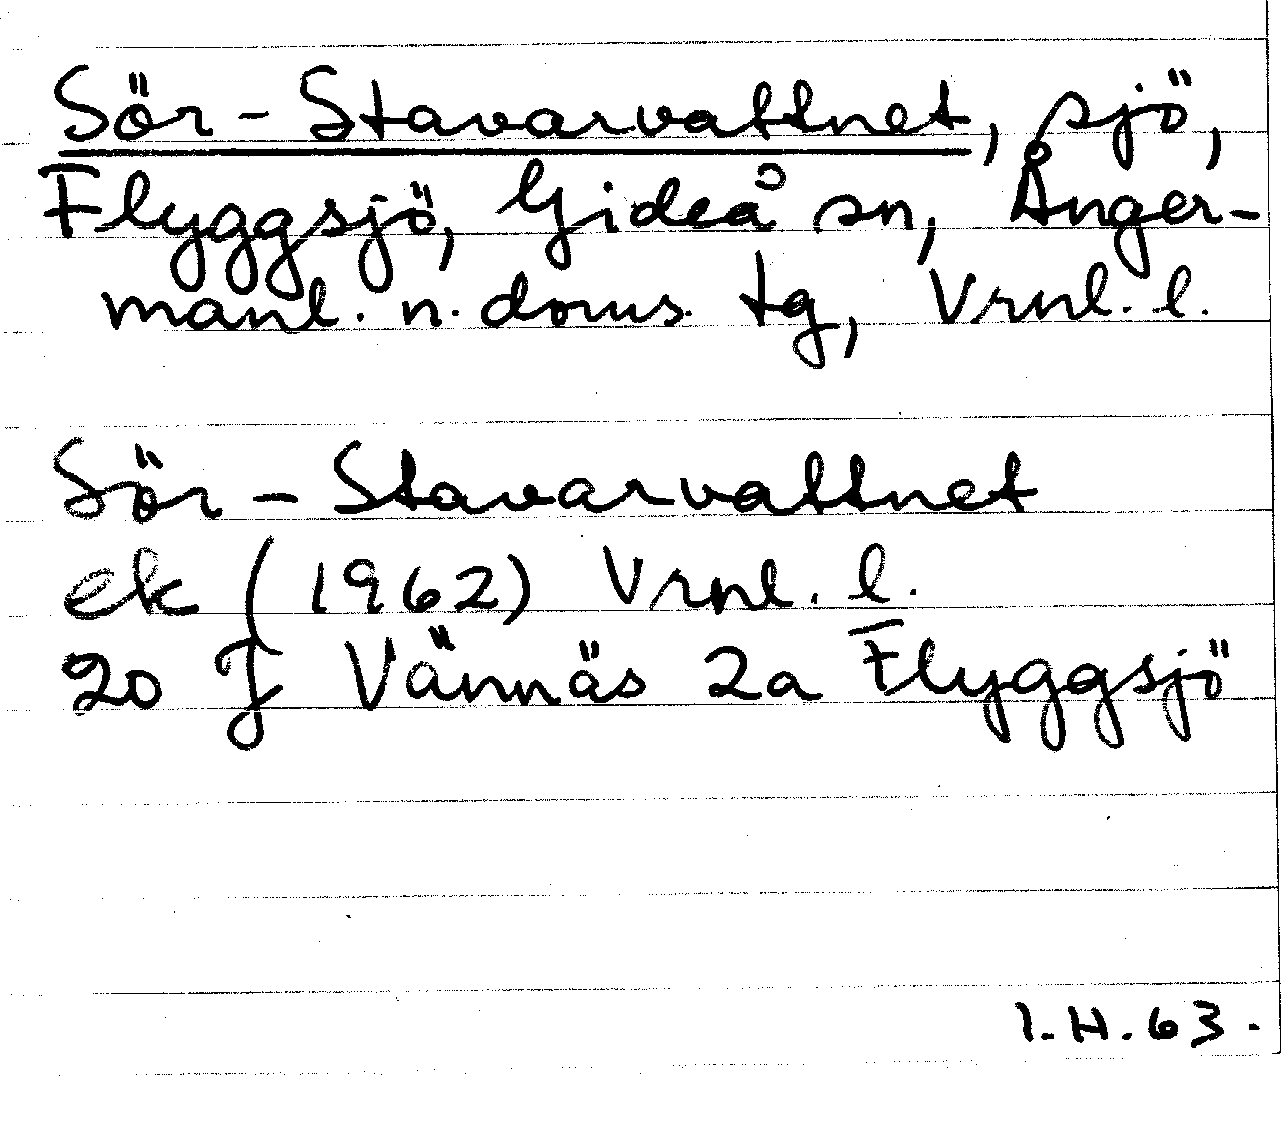 Sör-Stavarvattnet, sjö,
Flyggsjö, Gideå sn, Ånger-
manl. n. doms. tg, Vrnl. l.
Sör-Stavarvattnet
ek (1962) Vrnl. l.
20 J Vännäs 2a Flyggsjö
I.H.63.